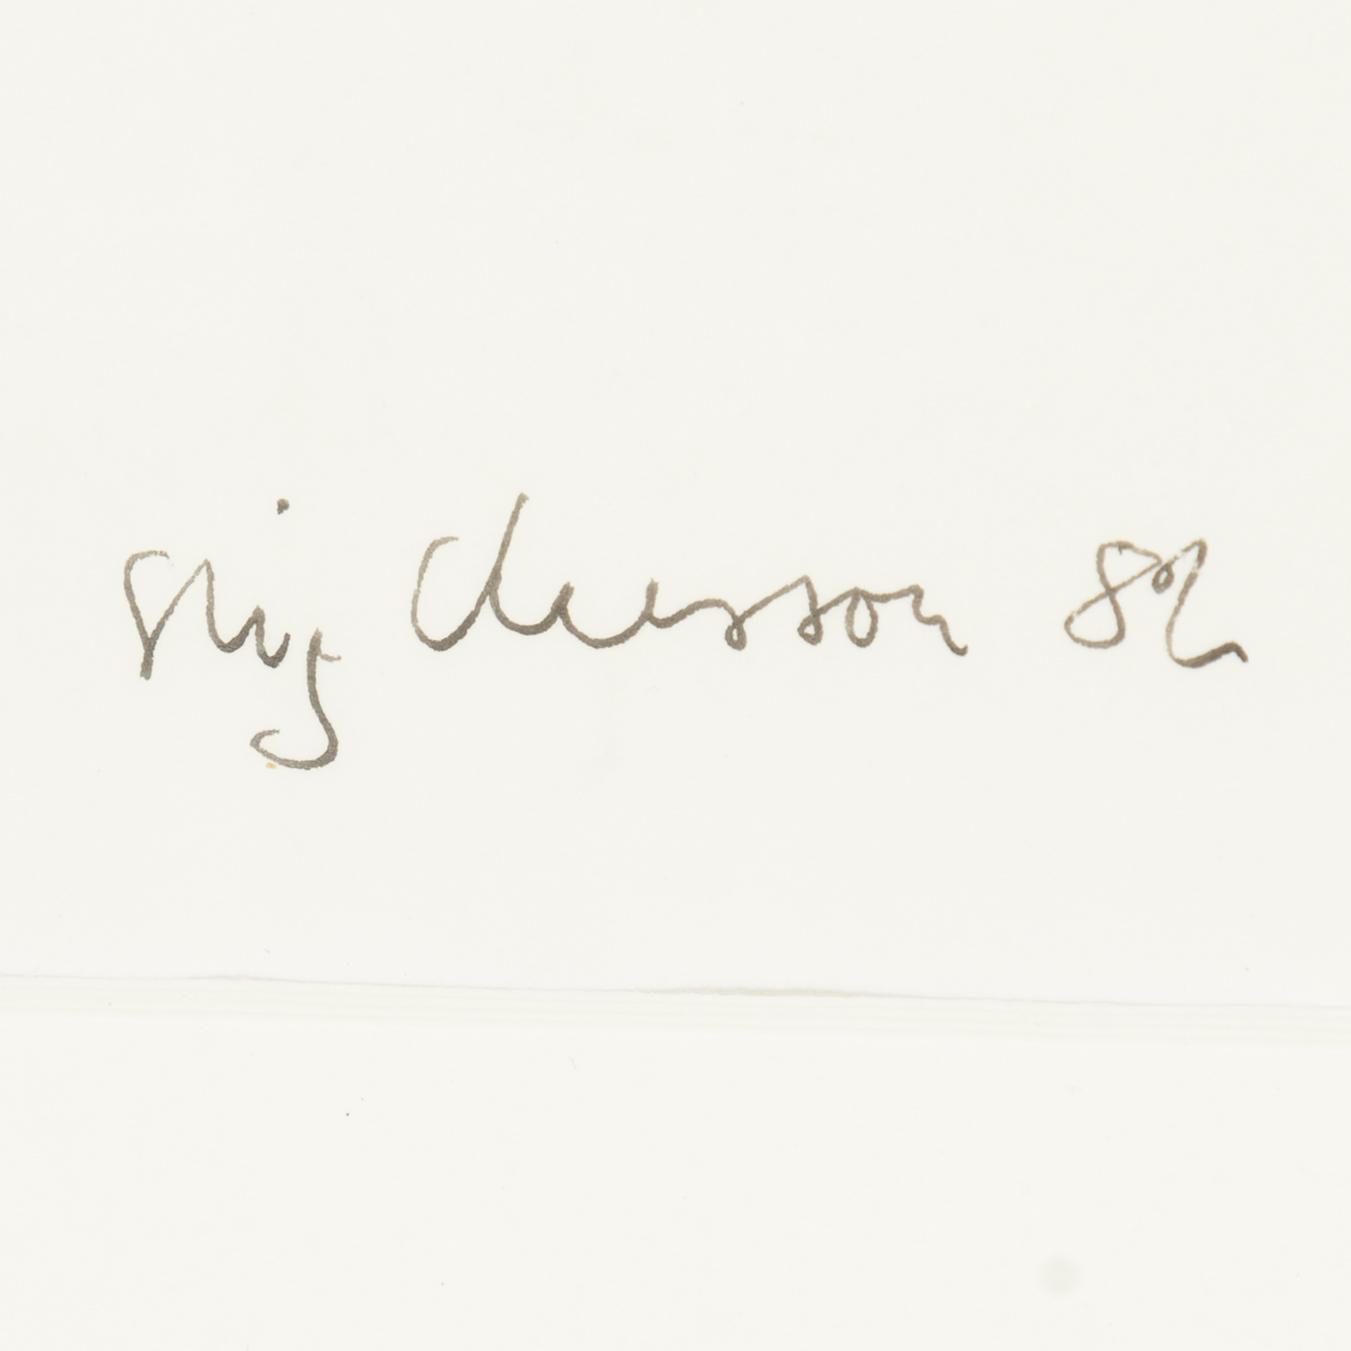 Stig Claesson 82